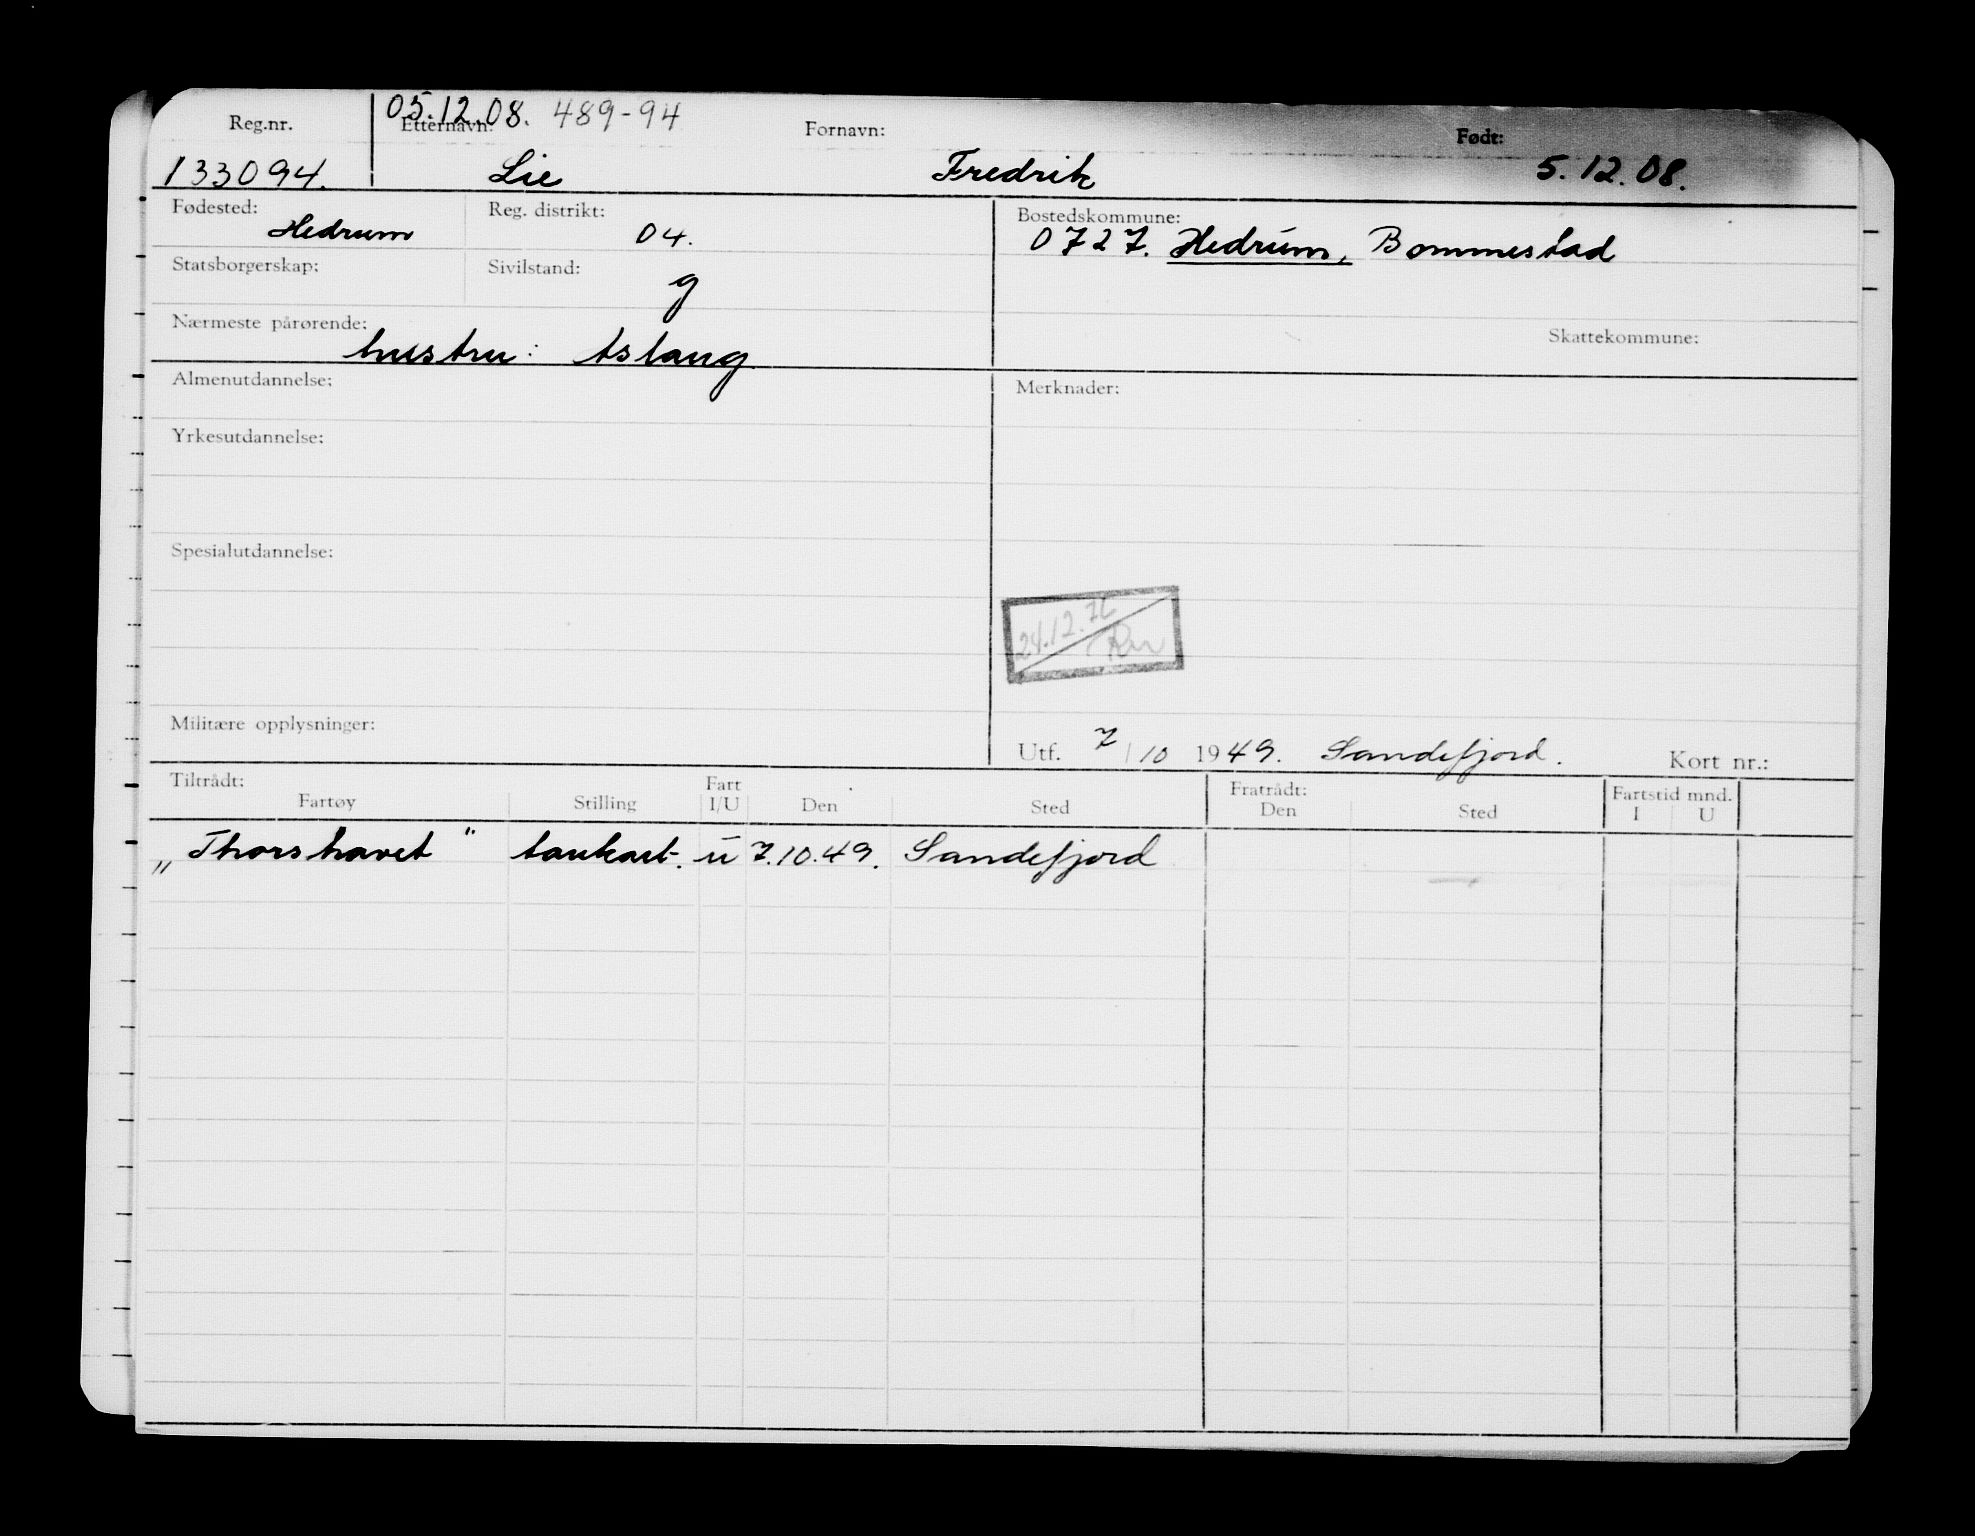 05.12.08. 489-94
Reg.nr. Etternavn: Fornavn: Født:
133094. Lie Fredrik 5.12.08.
Fødested: Hedrum Reg. distrikt: 04. Bostedskommune:
0727. Hedrum, Bommestad
Statsborgerskap: Sivilstand: g
Nærmeste pårørende: Skattekommune:
hustru: Aslaug
Almenutdannelse: Merknader:
Yrkesutdannelse:
Spesialutdannelse:
24.12.76
Militære opplysninger:
Utf. 7/10 1949. Sandefjord. Kort nr.:
Tiltrådt: Fart Fratrådt: Fartstid mnd.
Fartøy Stilling I/U Den Sted Den Sted I U
„Thorshavet" tankart. u 7.10.49. Sandefjord